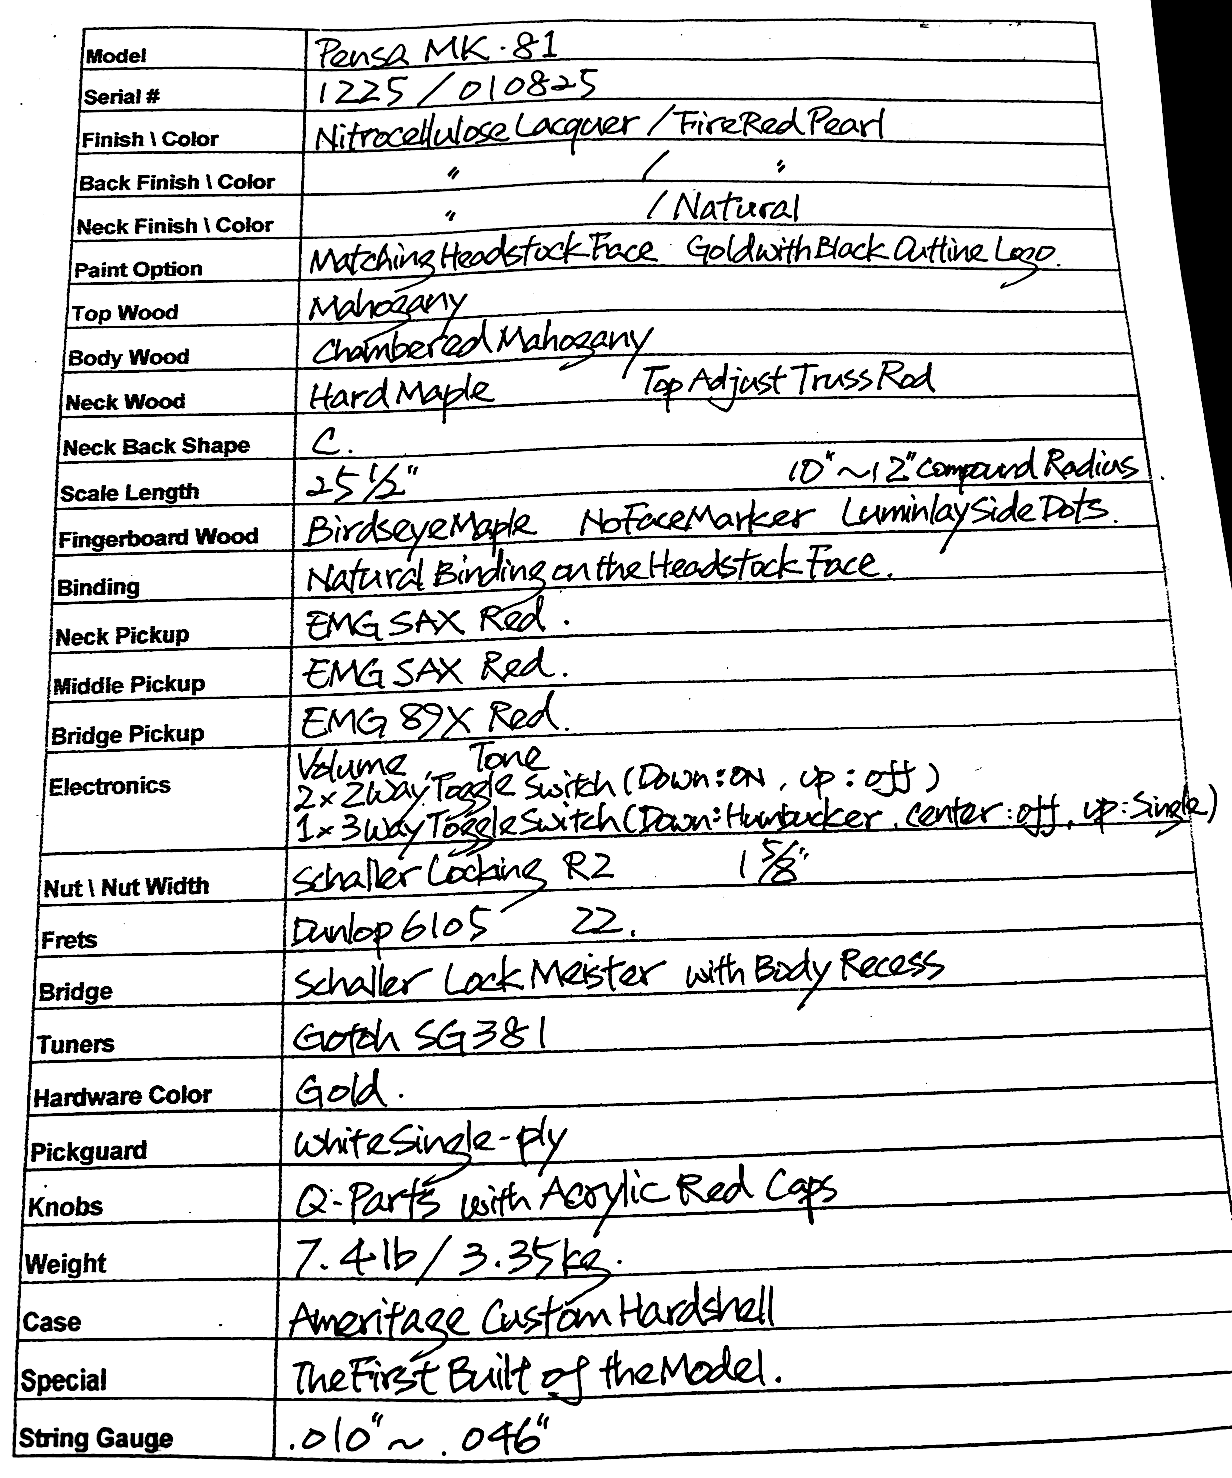 Model Pensa MK-81
Serial # 1225 / 010825
Finish \ Color Nitrocellulose Lacquer / Fire Red Pearl
Back Finish \ Color " / "
Neck Finish \ Color " / Natural
Paint Option Matching Headstock Face Gold with Black Outline Logo.
Top Wood Mahogany
Body Wood Chambered Mahogany
Neck Wood Hard Maple Top Adjust Truss Rod
Neck Back Shape C.
Scale Length 25 1/2" 10" ~ 12" Compound Radius.
Fingerboard Wood Birdseye Maple No Face Marker Luminlay Side Dots.
Binding Natural Binding on the Headstock Face.
Neck Pickup EMG SAX Red.
Middle Pickup EMG SAX Red.
Bridge Pickup EMG 89X Red.
Electronics Volume, Tone
2 x 2Way Toggle Switch (Down: ON, up: off)
1 x 3Way Toggle Switch (Down: Humbucker, center: off, up: Single)
Nut \ Nut Width Schaller Locking R2 1 5/8"
Frets Dunlop 6105 22.
Bridge Schaller LockMeister with Body Recess
Tuners Gotoh SG381
Hardware Color Gold.
Pickguard White Single-ply
Knobs Q-Parts with Acrylic Red Caps
Weight 7.4 lb / 3.35 kg.
Case Ameritage Custom Hardshell
Special The First Built of the Model.
String Gauge .010" ~ .046"